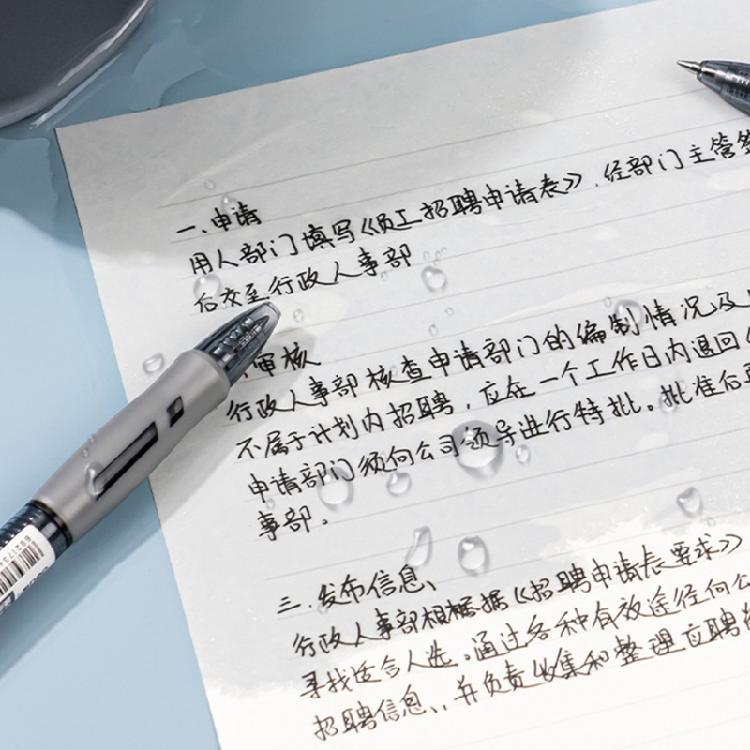 一、申请
用人部门填写《员工招聘申请表》，经部门主管签
后交至行政人事部
审核
行政人事部核查申请部门的编制情况及
不属于计划内招聘，应在一个工作日内退回
申请部门须向公司领导进行特批。批准后
事部。
三、发布信息、
行政人事部相根据《招聘申请表要求》
寻找适合人选。通过各种有效途径向公
招聘信息、，并负责收集和整理应聘